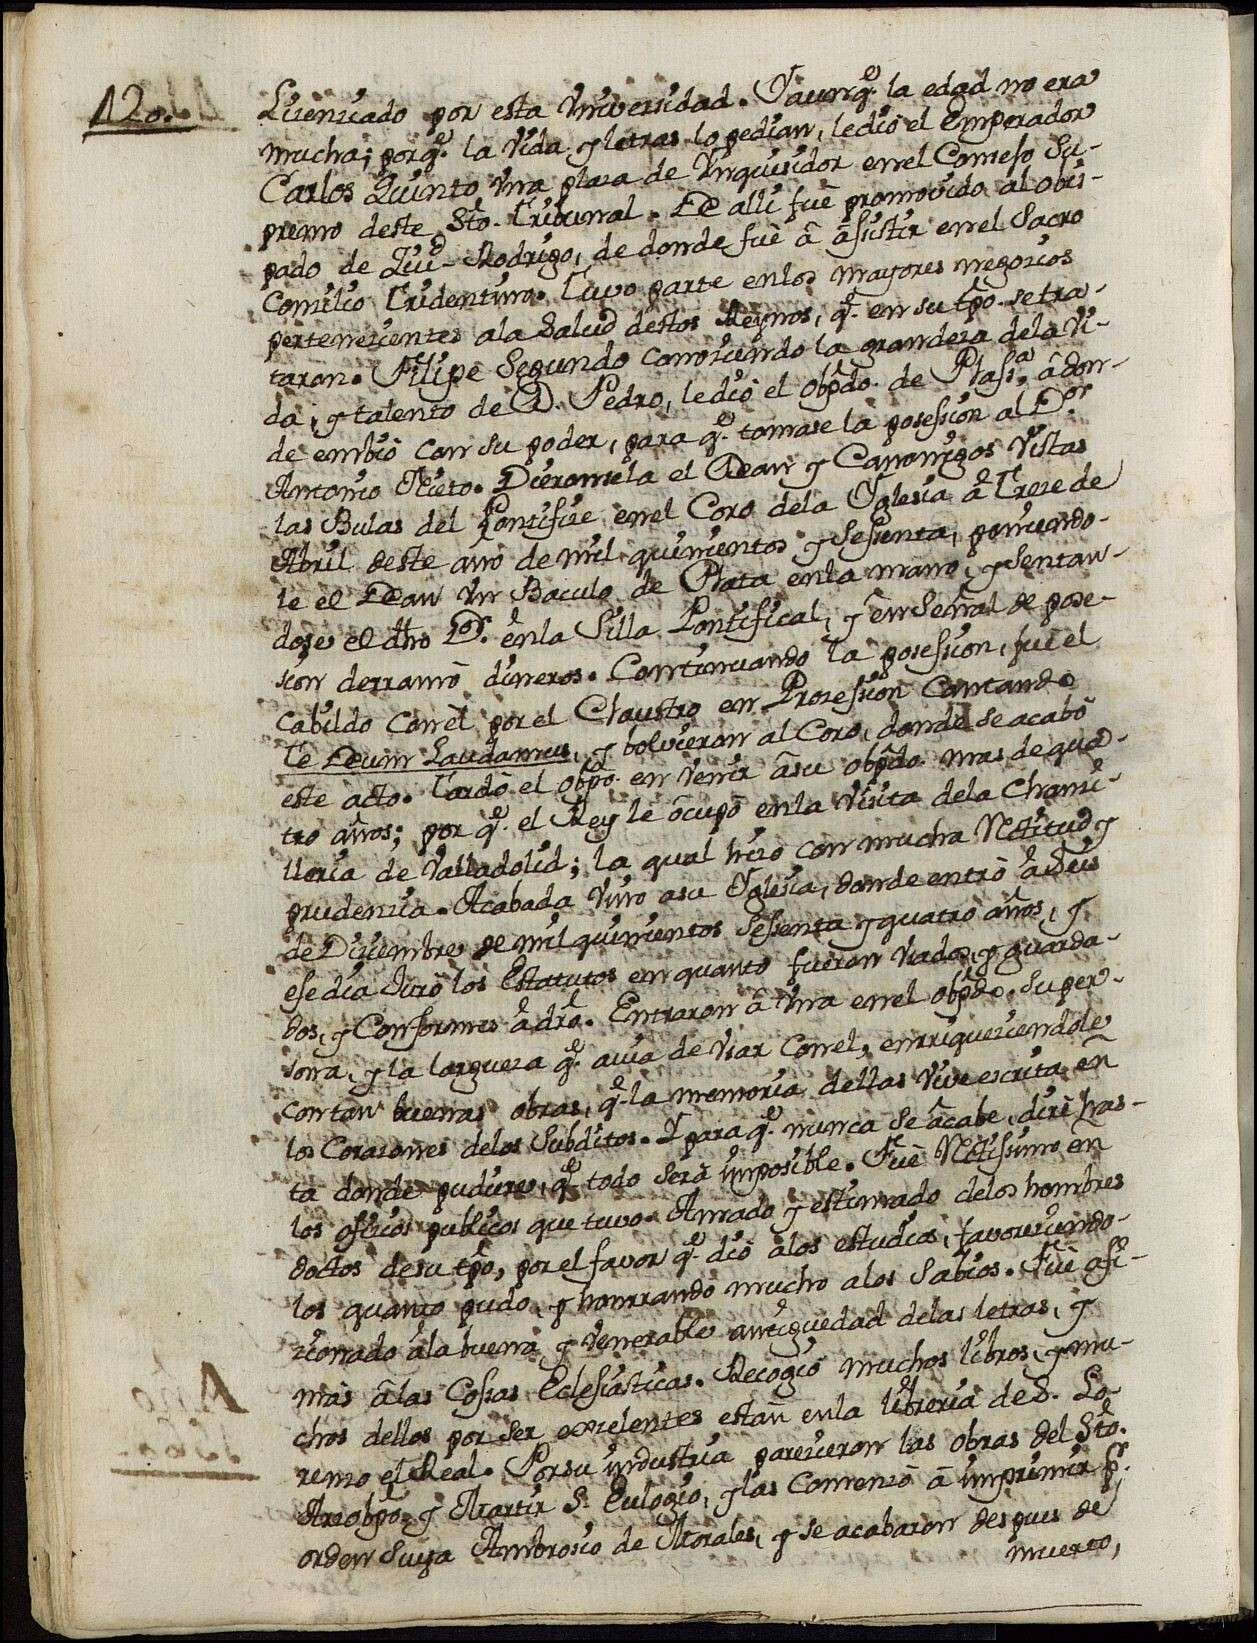 120.
Lizenziado por esta Vniversidad. Y aunq.e la edad no era
mucha; porq.e la Vida y letras lo pedian, le dio el Emperador
Carlos Quinto vna plaza de Ynquisidor en el Consejo Su-
premo deste S.to Tribunal. De alli fuè promovido al obis-
pado de Ziu.d Rodrigo, de donde fuè â âsistir en el Sacro
Conzilio Tridentino. Tuvo parte en los mayores negozios
pertenezientes a la Salud destos Reynos, q.e en su tpõ. se tra-
taron. Filipe Segundo conoziendo la grandeza de la Vi-
da, y talento de D. Pedro, le diò el obpdo. de Plas.a, âdon-
de embiò con su poder, para q.e tomase la posession al D.or
Antonio Nieto. Dieronsela el Dean y Canonigos Vistas
las Bulas del Pontifize en el Coro de la Yglesia â Treze de
Abril deste año de mil quinientos y Sesenta, poniendo-
le el Dean vn Baculo de Plata en la mano, y Sentan-
dose el dho D.or en la Silla Pontifical, y en Señal de pose-
sion derramò dineros. Continuando la posession, fuè el
Cabildo con el por el Claustro en Prozession Cantando
Te Deum Laudamus, y bolvieron al Coro, donde se acabò
este acto. Tardò el obpõ. en venir âsu obpdo. mas de qua-
tro años; por q.e el Rey le ôcupò en la Visita de la Chanzi-
lleria de Valladolid; la qual hizo con mucha Rectitud y
prudenzia. Acabada vino a su Yglesia, donde entrò â Seis
de Diziembre de mil quinientos Sesenta y quatro años, y
ese dia Jurò los Estatutos en quanto fueron vsados, y guarda-
dos, y Conformes â dro. Entraron â vna en el obpdo. Su per-
sona, y la largueza q.e avia de vsar con el, enrriqueziendole
con tan buenas obras, q.e la memoria dellas Vive escrita en
los Corazones de los Subditos. Y para q.e nunca se âcabe, dirè has-
ta donde pudiere, q.e todo Serà imposible. Fuè Rectissimo en
los ofizios publicos que tuvo. Amado y estimado de los hombres
doctos de su tpõ, por el favor q.e diò a los estudios, favoreziendo-
los quanto pudo, y honrrando mucho a los Sabios. Fuè afi-
zionado â la buena y Venerable antiguedad de las letras, y
mas â las Cosas Eclesiasticas. Recogiò muchos libros, y mu-
chos dellos por ser exzelentes estan en la libreria de S. Lo-
renzo el Real. Por su industria parezieron las obras del S.to
Arzobpõ y Martir S. Eulogio, y las Comenzò â imprimir p.r
orden Suya Ambrosio de Morales, y se acabaron despues de
muerto,